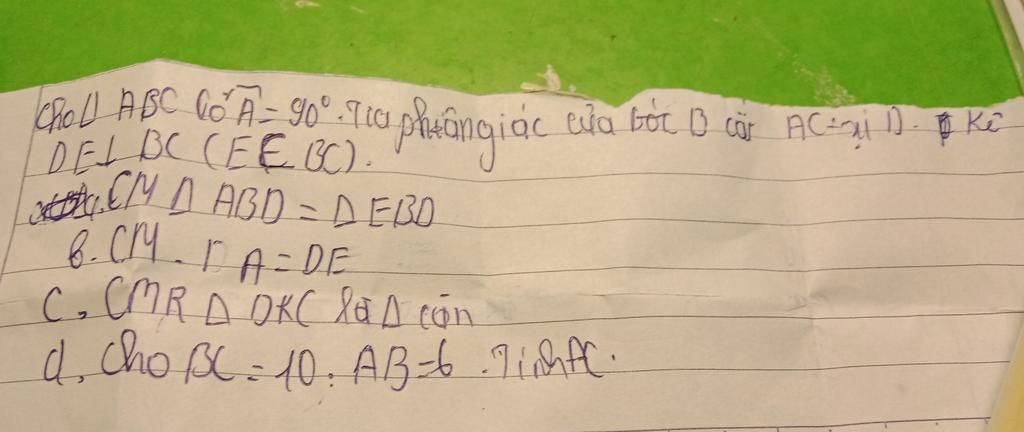 Cho Δ ABC Có A = 90°. Tia phân giác của góc B cắt AC tại D. Kẻ
DE⊥ BC (E∈ BC).
a. CM Δ ABD = Δ EBD
b. CM. DA = DE
C, CMR Δ DKC là Δ cân
d, Cho BC = 10. AB=6. Tính AC.